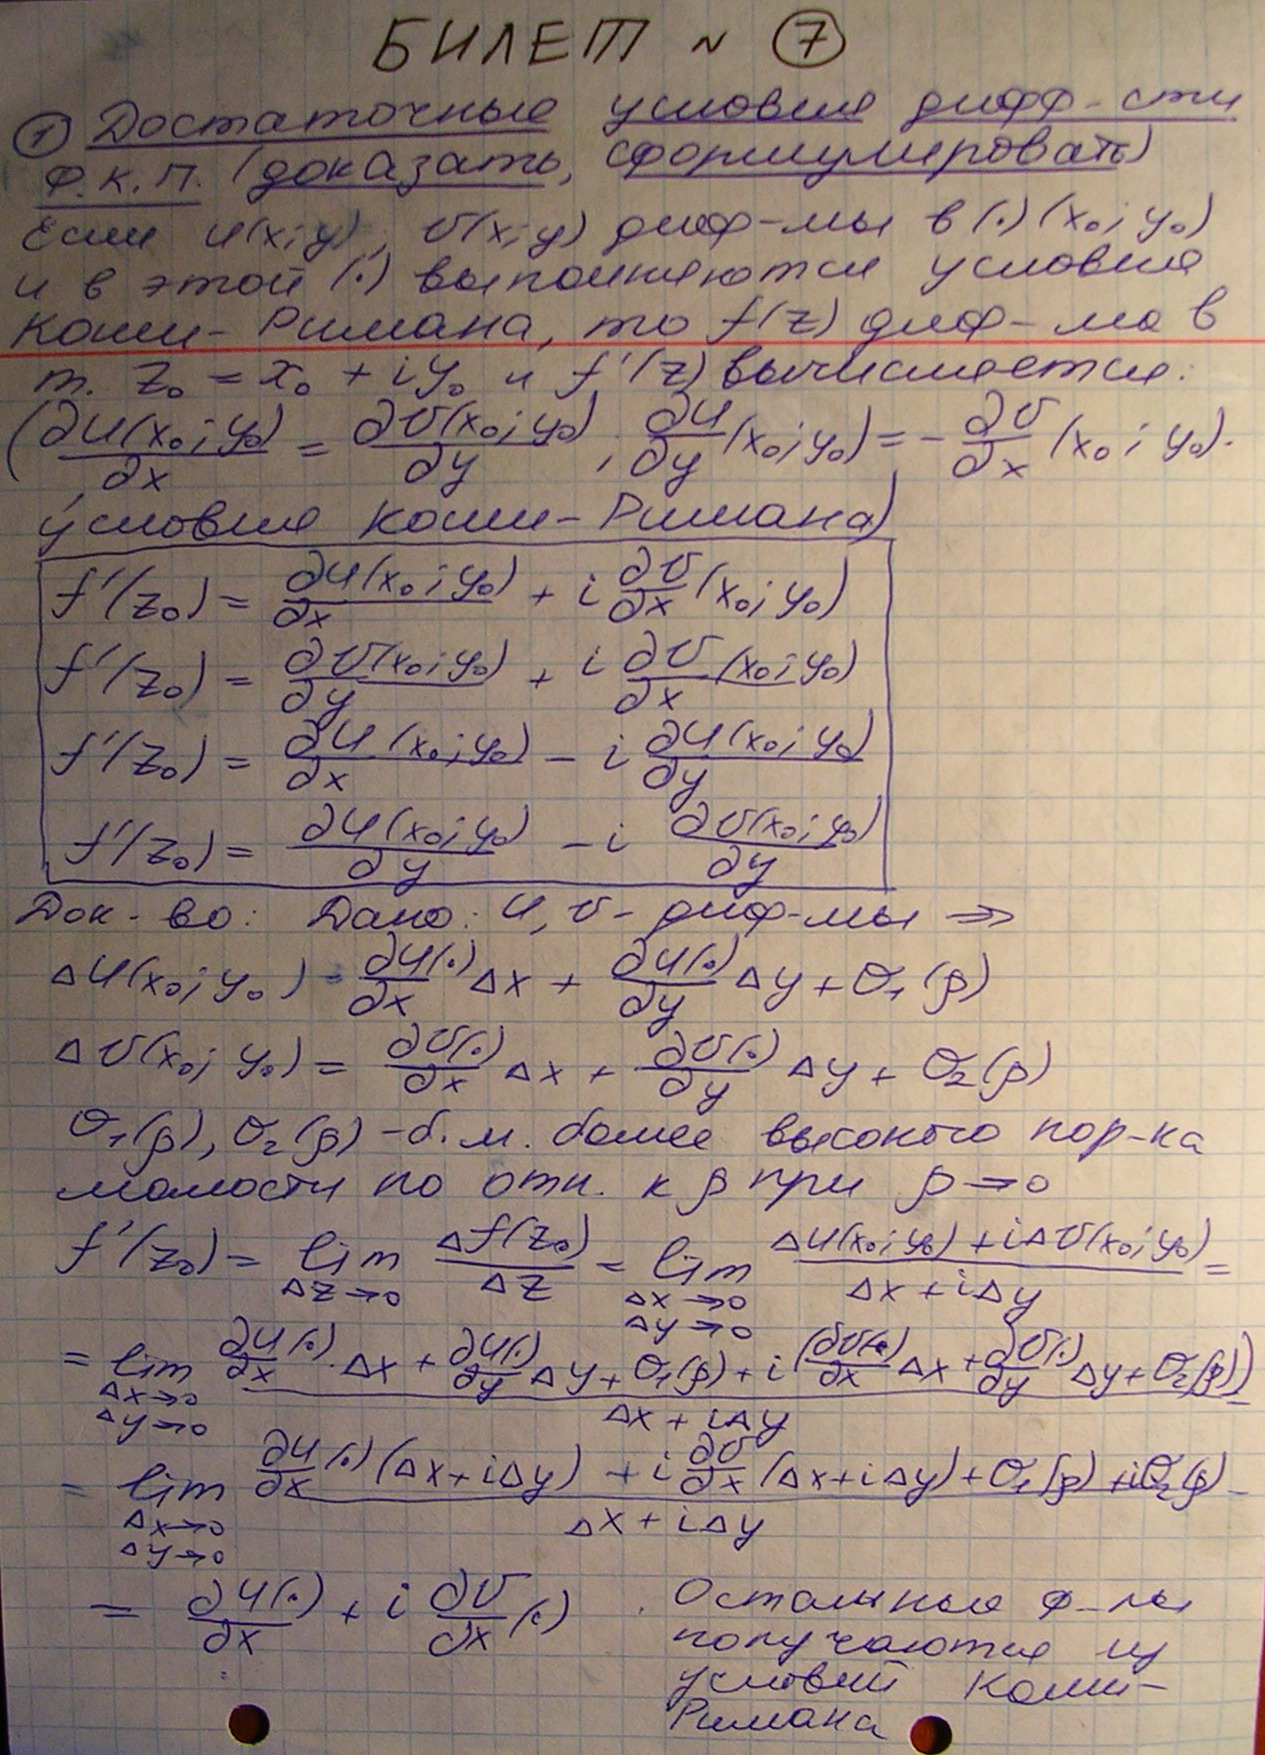 БИЛЕТ ~ 7
1 Достаточные условия дифф-сти
Ф.К.П. (доказать, сформулировать)
Если U(x;y), V(x;y) диф-мы в (·) (x₀; y₀)
и в этой (·) выполняются условия
Коши-Римана, то f(z) диф-ма в
т. z₀ = x₀ + iy₀ и f'(z) вычисляется:
(∂U(x₀;y₀)/∂x = ∂V(x₀;y₀)/∂y, ∂U/∂y (x₀;y₀) = -∂V/∂x (x₀; y₀).
условие Коши-Римана)
f'(z₀) = ∂U(x₀;y₀)/∂x + i ∂V/∂x (x₀; y₀)
f'(z₀) = ∂V(x₀;y₀)/∂y + i ∂V/∂x (x₀;y₀)
f'(z₀) = ∂U(x₀;y₀)/∂x - i ∂U(x₀;y₀)/∂y
f'(z₀) = ∂U(x₀;y₀)/∂y - i ∂V(x₀;y₀)/∂y
Док-во: Дано: U, V - диф-мы ⇒
ΔU(x₀;y₀) = ∂U(·)/∂x Δx + ∂U(·)/∂y Δy + O₁(ρ)
ΔV(x₀; y₀) = ∂V(·)/∂x Δx + ∂V(·)/∂y Δy + O₂(ρ)
O₁(ρ), O₂(ρ) - б.м. более высокого пор-ка
малости по отн. к ρ при ρ → 0
f'(z₀) = lim Δz→0 Δf(z₀)/Δz = lim Δx→0 Δy→0 (ΔU(x₀;y₀) + iΔV(x₀;y₀))/(Δx + iΔy) =
= lim Δx→0 Δy→0 (∂U(·)/∂x · Δx + ∂U(·)/∂y Δy + O₁(ρ) + i(∂V(·)/∂x Δx + ∂V(·)/∂y Δy + O₂(ρ)))/(Δx + iΔy) =
= lim Δx→0 Δy→0 (∂U/∂x(·)(Δx + iΔy) + i ∂V/∂x (Δx + iΔy) + O₁(ρ) + iO₂(ρ))/(Δx + iΔy) =
= ∂U(·)/∂x + i ∂V/∂x (·)
Остальные ф-лы
получаются из
условий Коши-
Римана